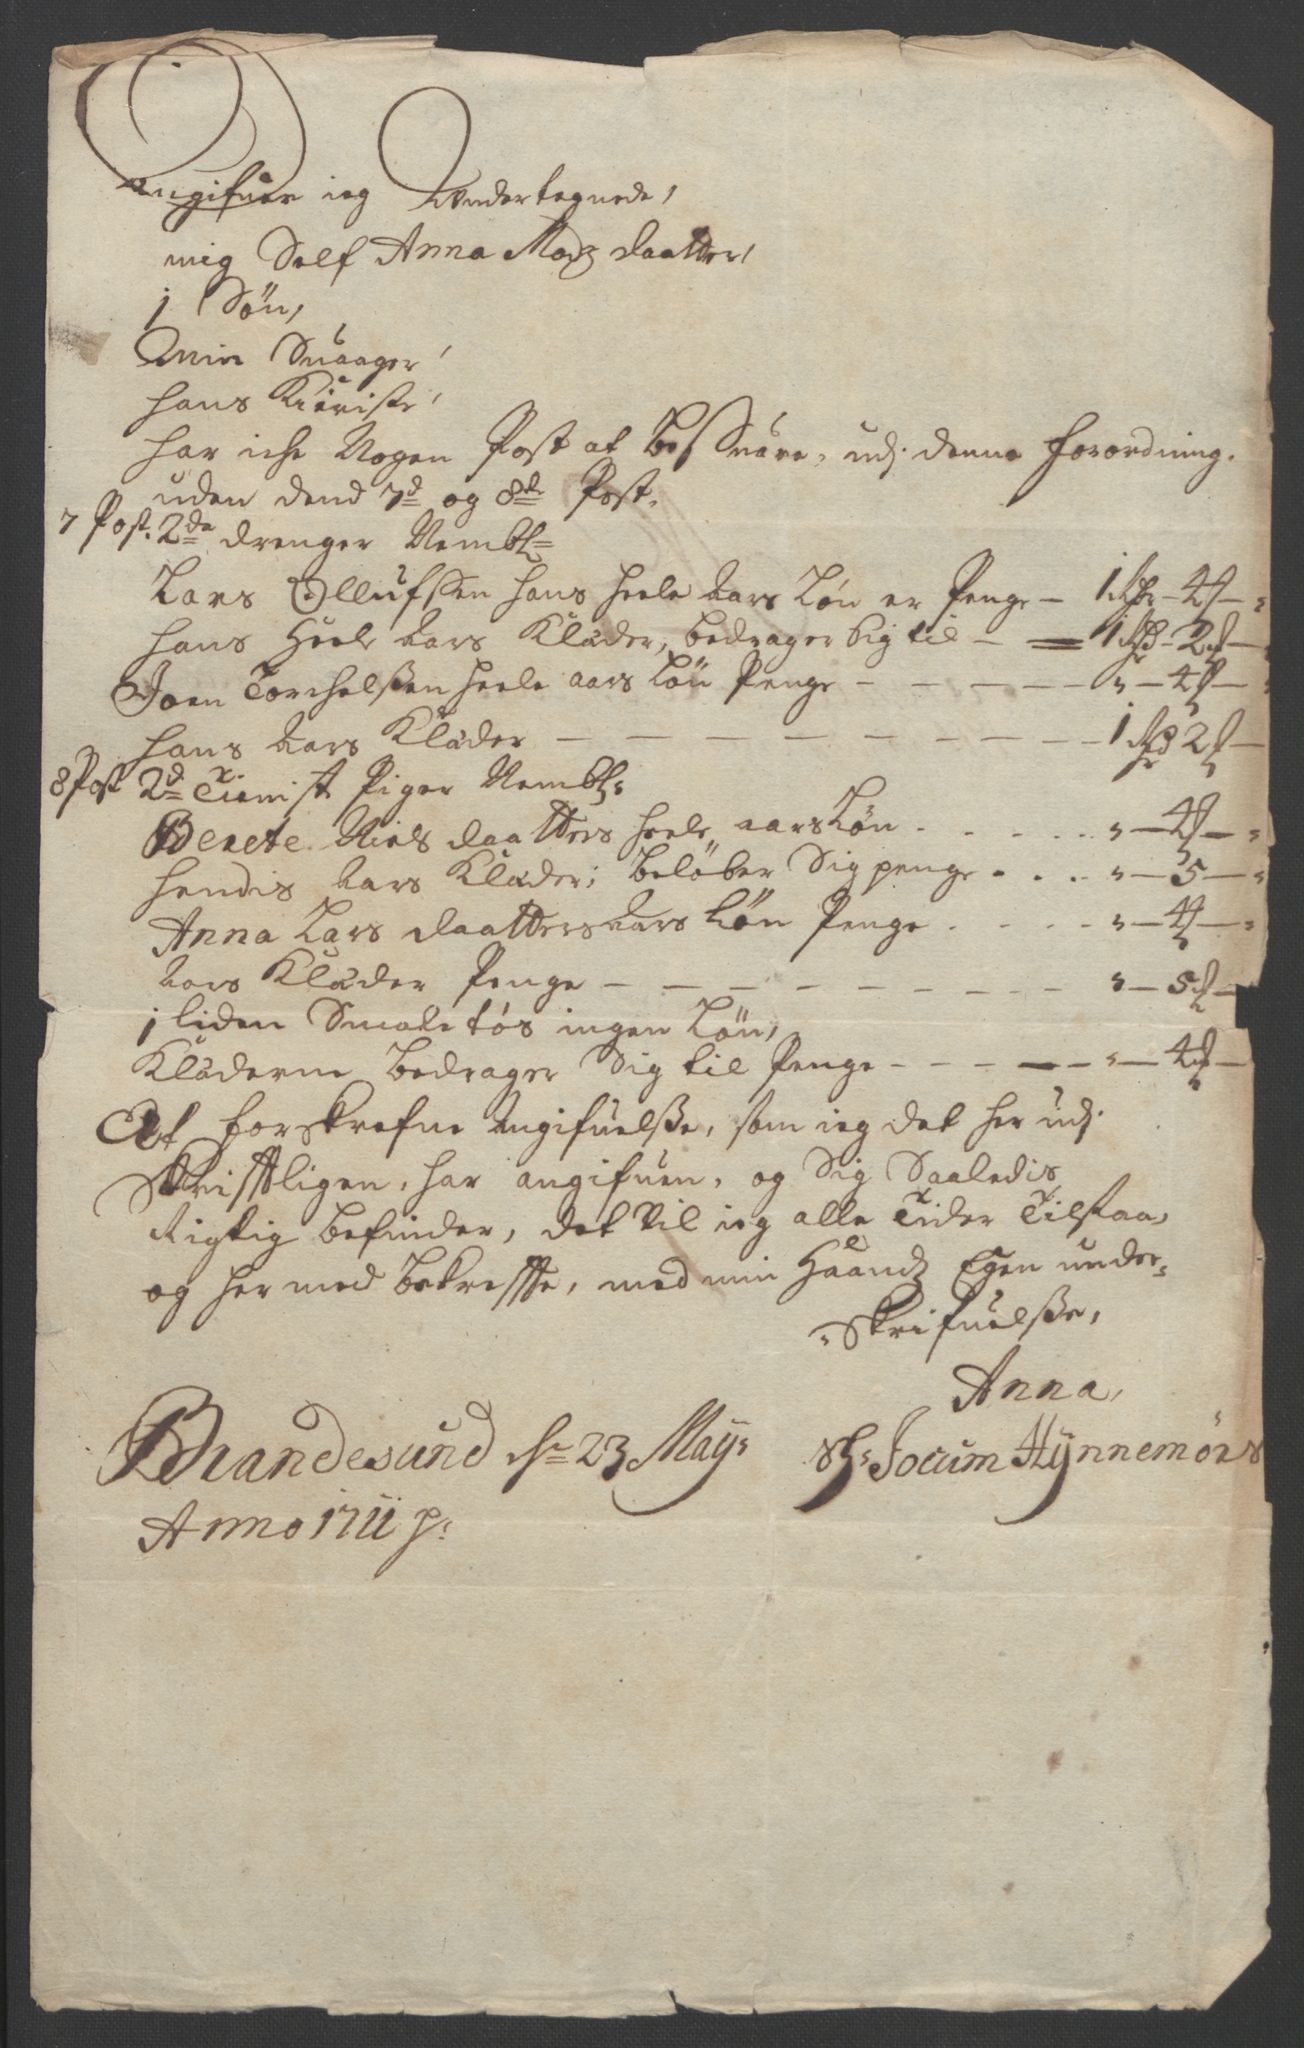 Angifuer ieg Undertegnede,
mig Self Anna Madz daatter,
1 Søn,
Min Suaager,
hans Kiæriste,
har iche Nogen Post at beSuare, udj denne forordning.
uden dend 7d og 8de Post.
7 Post. 2de drenger Nembl=
Lars OllufSen hans heele Aars Løn er Penge — 1 Rdr — 4 ß —
hans Heele Aars Klæder, bedrager sig til — 1 Rdr — 2 ß —
Joen Torchelßen heele aars Løn Penge — " — 4 ß —
hans Aars Klæder — 1 Rdr 2 ß —
8 Post 2d Tienist Piger Nembl:
Berete Niels daatters heele aars Løn . . . . . " — 4 ß — "
hendis Aars Klæder; beløber Sig penge . . . . " — 5 — "
Anna Lars daatters Aars Løn Penge . . . . " — 4 ß — "
Aars Klæder Penge — " — 5 ß —
1 liden Smale tøs ingen Løn,
Klæderne bedrager Sig til Penge — " — 4 ß —
At forskrefne Angifuelße, som ieg det her udj
Skrifftligen, har angifuen, og Sig Saaledis
Rigtig befinder, det Vil ieg alle Tider Tilstaa,
og her med bekreffte, med min Haandz Egen under=
=Skrifuelße,
Anna,
Brandesund d: 23 May: Sl: Jocum Hÿnnemørs
Anno 1711 p: